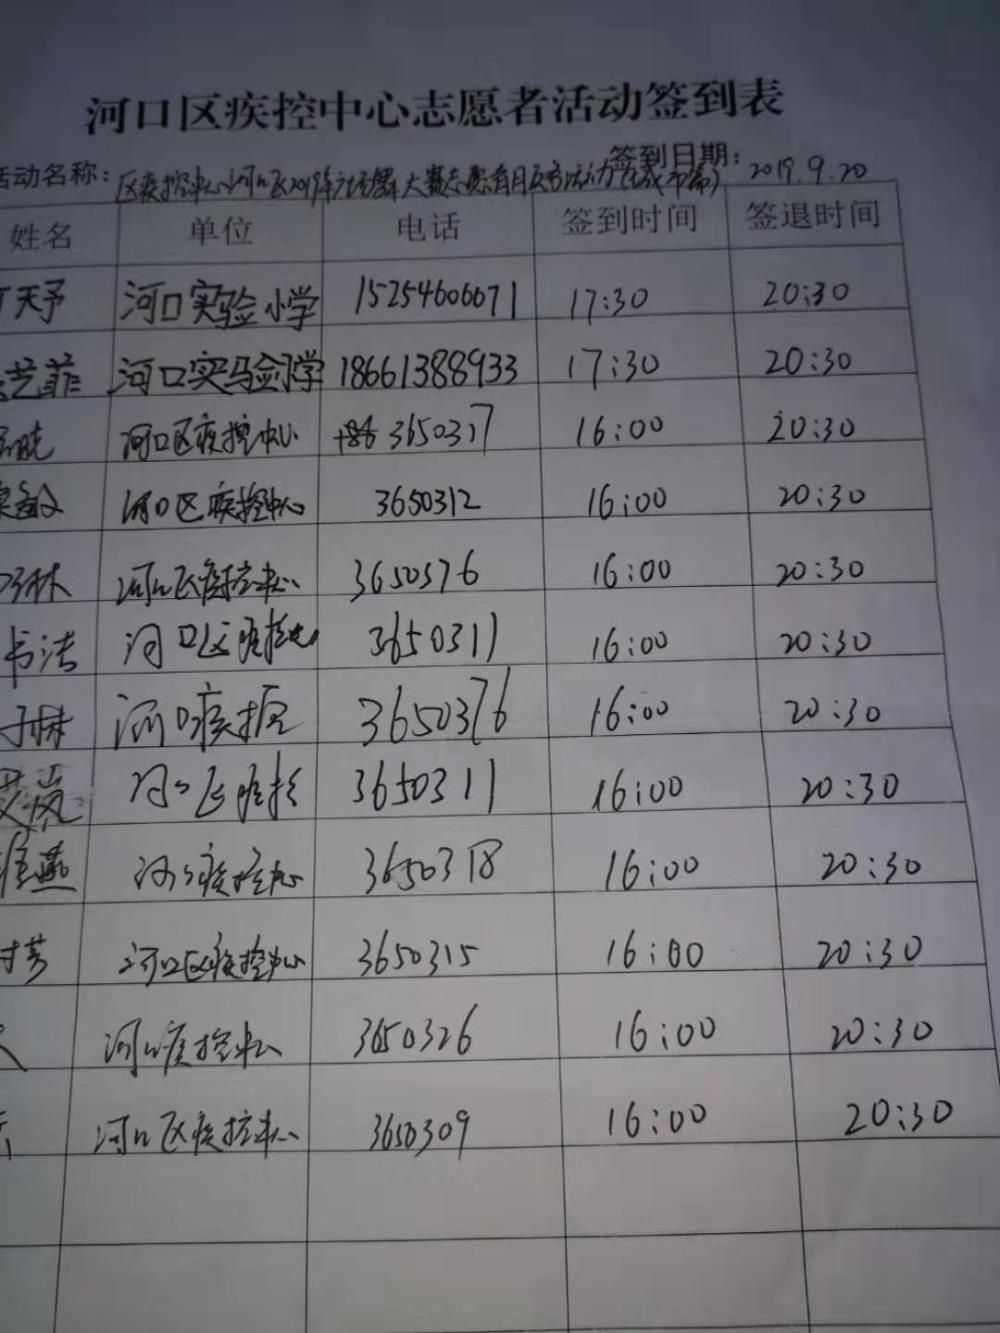 河口区疾控中心志愿者活动签到表
活动名称: 区疾控中心河口区2019年广场舞大赛志愿者 签到日期: 2019.9.20
姓名 单位 电话 签到时间 签退时间
天予 河口实验小学 15254606671 17:30 20:30
艺菲 河口实验小学 18661388933 17:30 20:30
晓 河口区疾控中心 3650317 16:00 20:30
河口区疾控中心 3650312 16:00 20:30
林 河口区疾控中心 3650376 16:00 20:30
书法 河口区疾控 3650311 16:00 20:30
子林 河口疾控 3650376 16:00 20:30
岚 河口区疾控 3650311 16:00 20:30
燕 河口疾控中心 3650318 16:00 20:30
芳 河口区疾控中心 3650315 16:00 20:30
河口疾控中心 3650326 16:00 20:30
河口区疾控中心 3650309 16:00 20:30